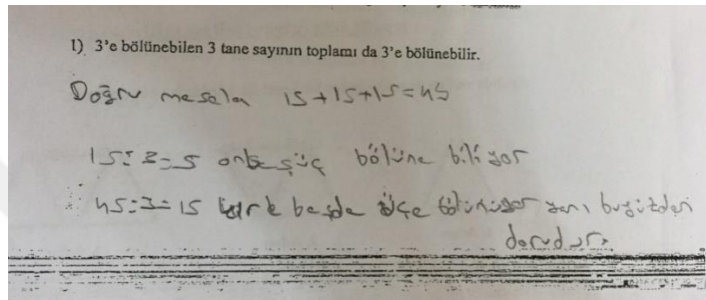 1) 3'e bölünebilen 3 tane sayının toplamı da 3'e bölünebilir.
Doğru mesela 15+15+15=45
15:3=5 onbeş üç bölüne biliyor
45:3=15 kırk beşde üçe bölünüyor yani buyüzden
dorudur.